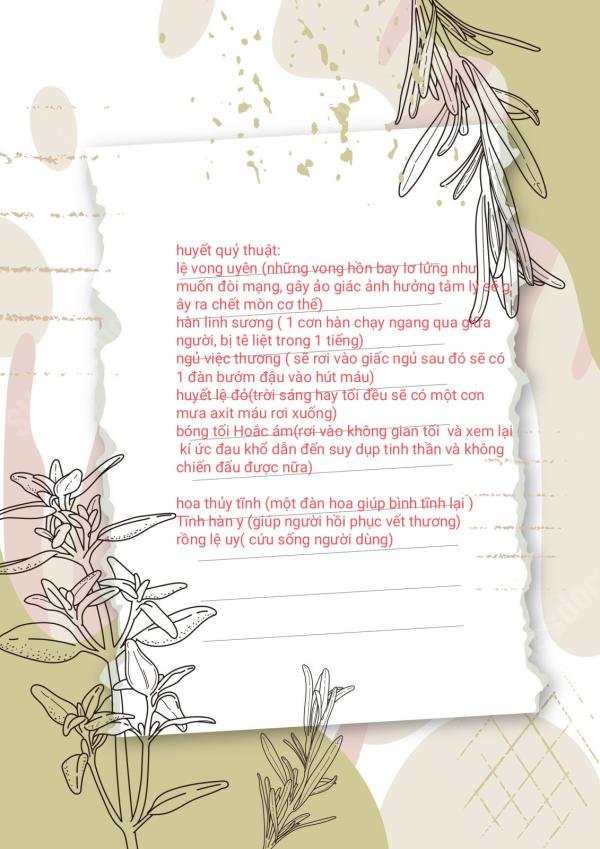 huyết quỷ thuật:
lệ vong uyên (những vong hồn bay lơ lửng như
muốn đòi mạng, gây ảo giác ảnh hưởng tâm lý sẽ g
ây ra chết mòn cơ thể)
hàn linh sương ( 1 cơn hàn chạy ngang qua giữa
người, bị tê liệt trong 1 tiếng)
ngủ việc thương ( sẽ rơi vào giấc ngủ sau đó sẽ có
1 đàn bướm đậu vào hút máu)
huyết lệ đỏ(trời sáng hay tối đều sẽ có một cơn
mưa axit máu rơi xuống)
bóng tối Hoắc ám(rơi vào không gian tối và xem lại
kí ức đau khổ dẫn đến suy dụp tinh thần và không
chiến đấu được nữa)
hoa thủy tĩnh (một đàn hoa giúp bình tĩnh lại )
Tĩnh hàn y (giúp người hồi phục vết thương)
rồng lệ uy( cứu sống người dùng)